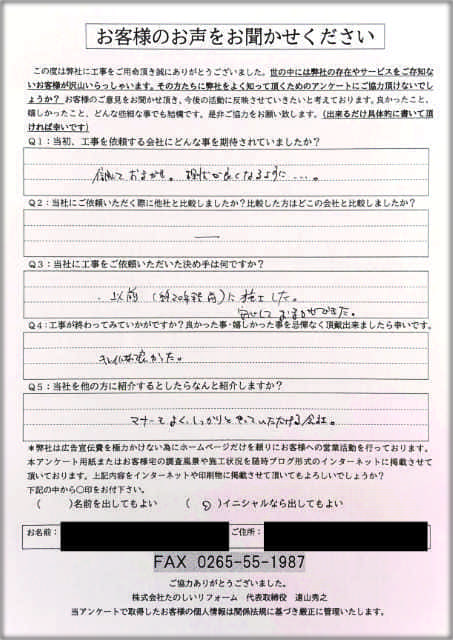 お客様のお声をお聞かせください
この度は弊社に工事をご用命頂き誠にありがとうございました。世の中には弊社の存在やサービスをご存知ない
お客様が沢山いらっしゃいます。その方たちに弊社をよく知って頂くためのアンケートにご協力頂けないで
しょうか？ お客様のご意見をお聞かせ頂き、今後の活動に反映させていきたいと考えております。良かったこと、
嬉しかったこと、どんな些細な事でも結構です。是非ご協力をお願い致します。(出来るだけ具体的に書いて頂
ければ幸いです)
Q1：当初、工事を依頼する会社にどんな事を期待されていましたか？
信用しておまかせ。現状が良くなるように...。
Q2：当社にご依頼いただく際に他社と比較しましたか？比較した方はどこの会社と比較しましたか？
Q3：当社に工事をご依頼いただいた決め手は何ですか？
・以前(約20年程前)に施工した。
安心しておまかせできた。
Q4：工事が終わってみていかがですか？良かった事・嬉しかった事を忌憚なく頂戴出来ましたら幸いです。
良かった。
Q5：当社を他の方に紹介するとしたらなんと紹介しますか？
マナーもよく、しっかりとやっていただける会社。
＊弊社は広告宣伝費を極力かけない為にホームページだけを頼りにお客様への営業活動を行っております。
本アンケート用紙またはお客様宅の調査風景や施工状況を随時ブログ形式のインターネットに掲載させて
頂いております。上記内容をインターネットや印刷物に掲載させて頂いてもよろしいでしょうか？
下記の中から〇印をお付下さい。
(　　)名前を出してもよい　　(　〇　)イニシャルなら出してもよい
お名前：　　ご住所：
FAX 0265-55-1987
ご協力ありがとうございました。
株式会社たのしいリフォーム　代表取締役　遠山秀之
当アンケートで取得したお客様の個人情報は関係法規に基づき厳正に管理いたします。